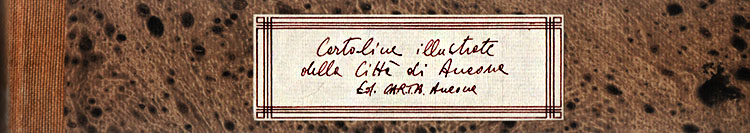 Cartoline illustrate
della Città di Ancona
Ed. CART.A. Ancona